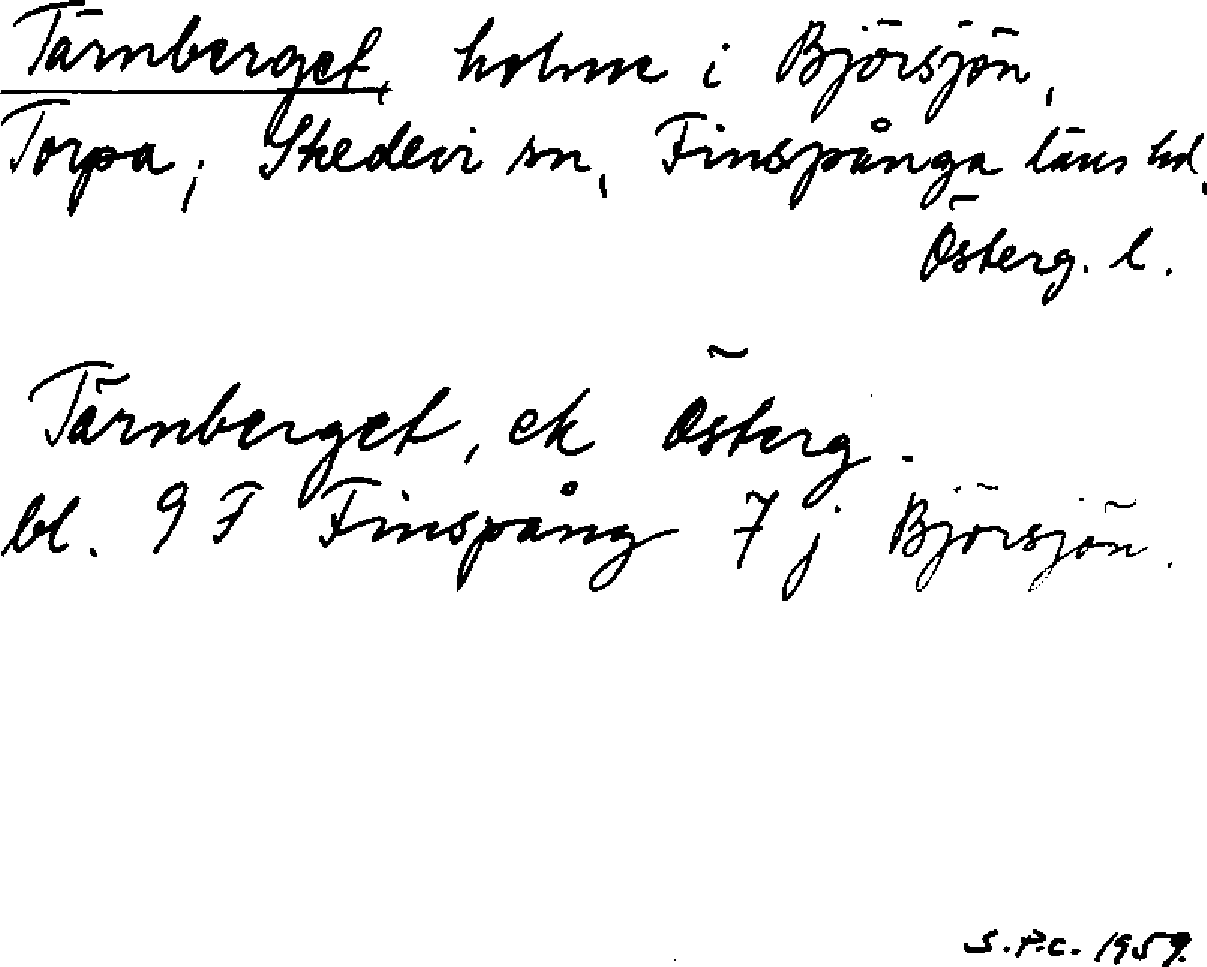 Tärnberget, holme i Björsjön,
Torpa; Skedevi sn, Finspånga läns hd,
Österg. l.
Tärnberget, ek Österg.
bl. 9 F Finspång 7 j Björsjön.
S.P.C. 1959.